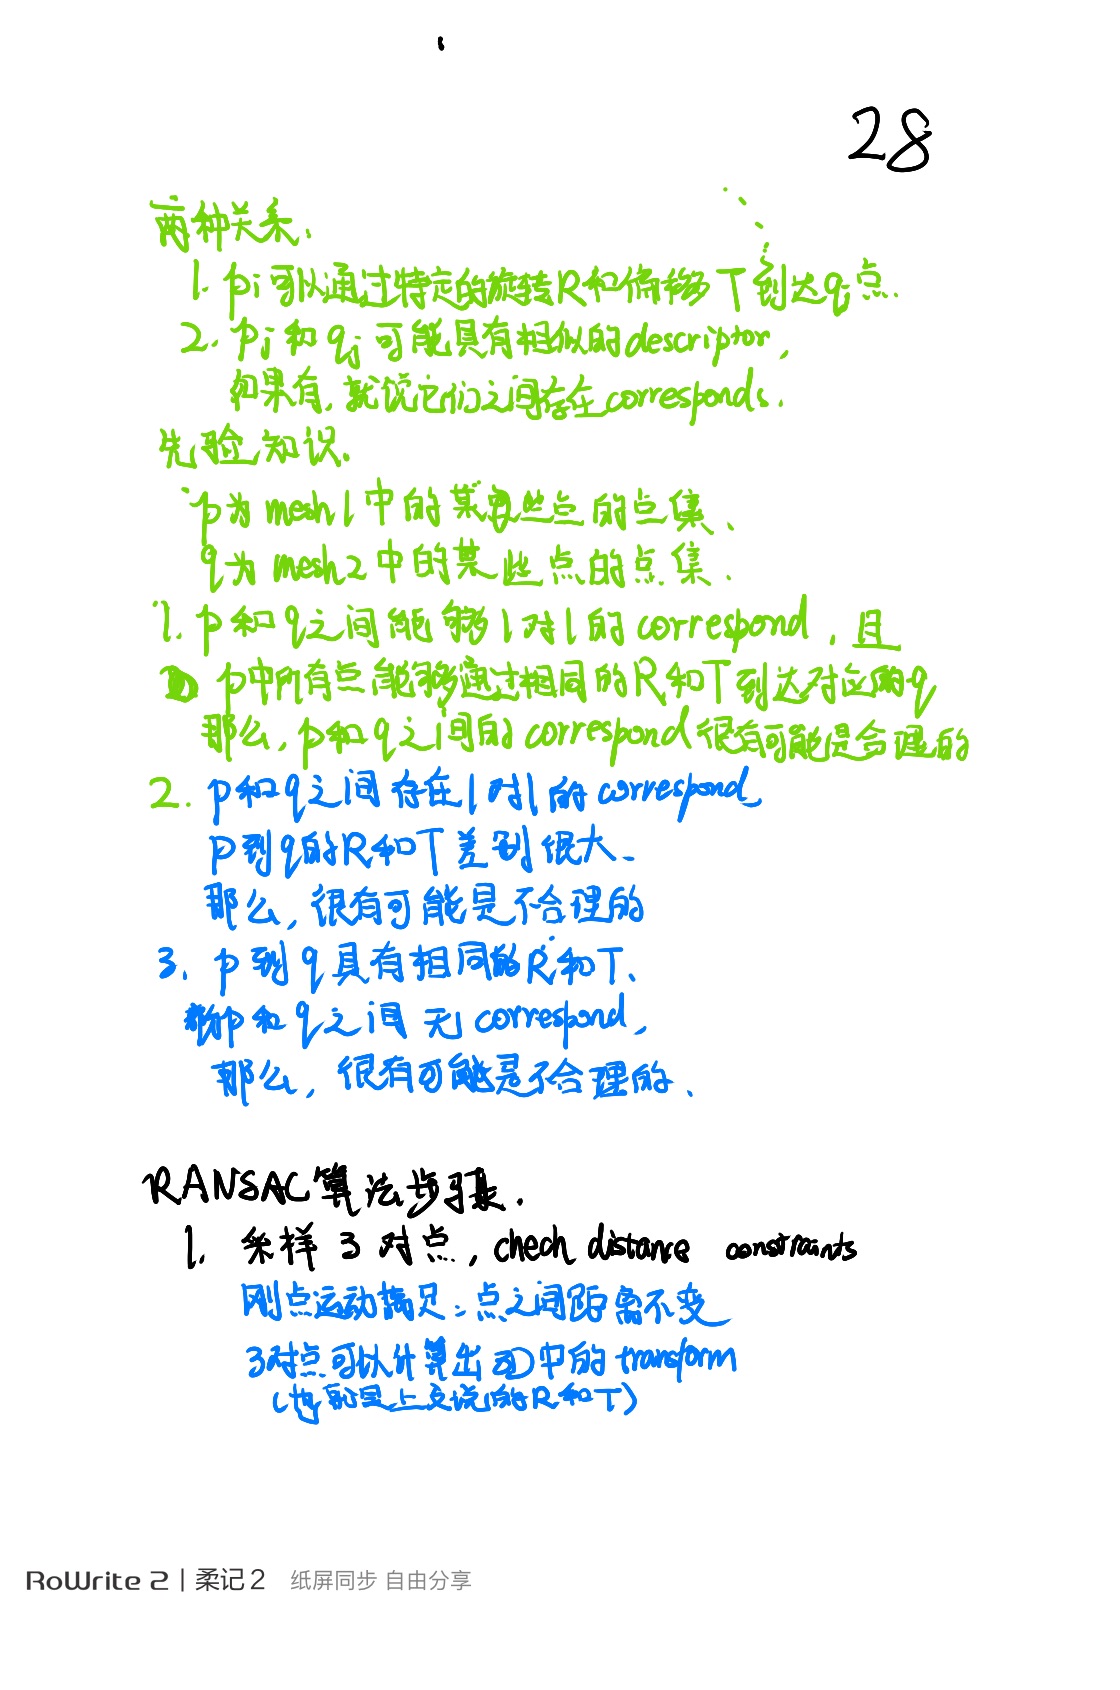 28
两种关系:
1. pi可以通过特定的旋转R和偏移T到达qi点.
2. pj和qj可能具有相似的descriptor,
如果有,就说它们之间存在corresponds.
先验知识.
p为mesh1中的某些点的点集、
q为mesh2中的某些点的点集.
1. p和q之间能够1对1的correspond,且
p中所有点能够通过相同的R和T到达对应的q
那么,p和q之间的correspond很有可能是合理的
2. p和q之间存在1对1的correspond,
p到q的R和T差别很大.
那么,很有可能是不合理的
3. p到q具有相同的R和T、
p和q之间无correspond,
那么,很有可能是不合理的、
RANSAC算法步骤.
1. 采样3对点,chech distance constraints
刚点运动满足:点之间距离不变
3对点可以计算出3D中的transform
(也就是上文说的R和T)
RoWrite 2 | 柔记2 纸屏同步 自由分享